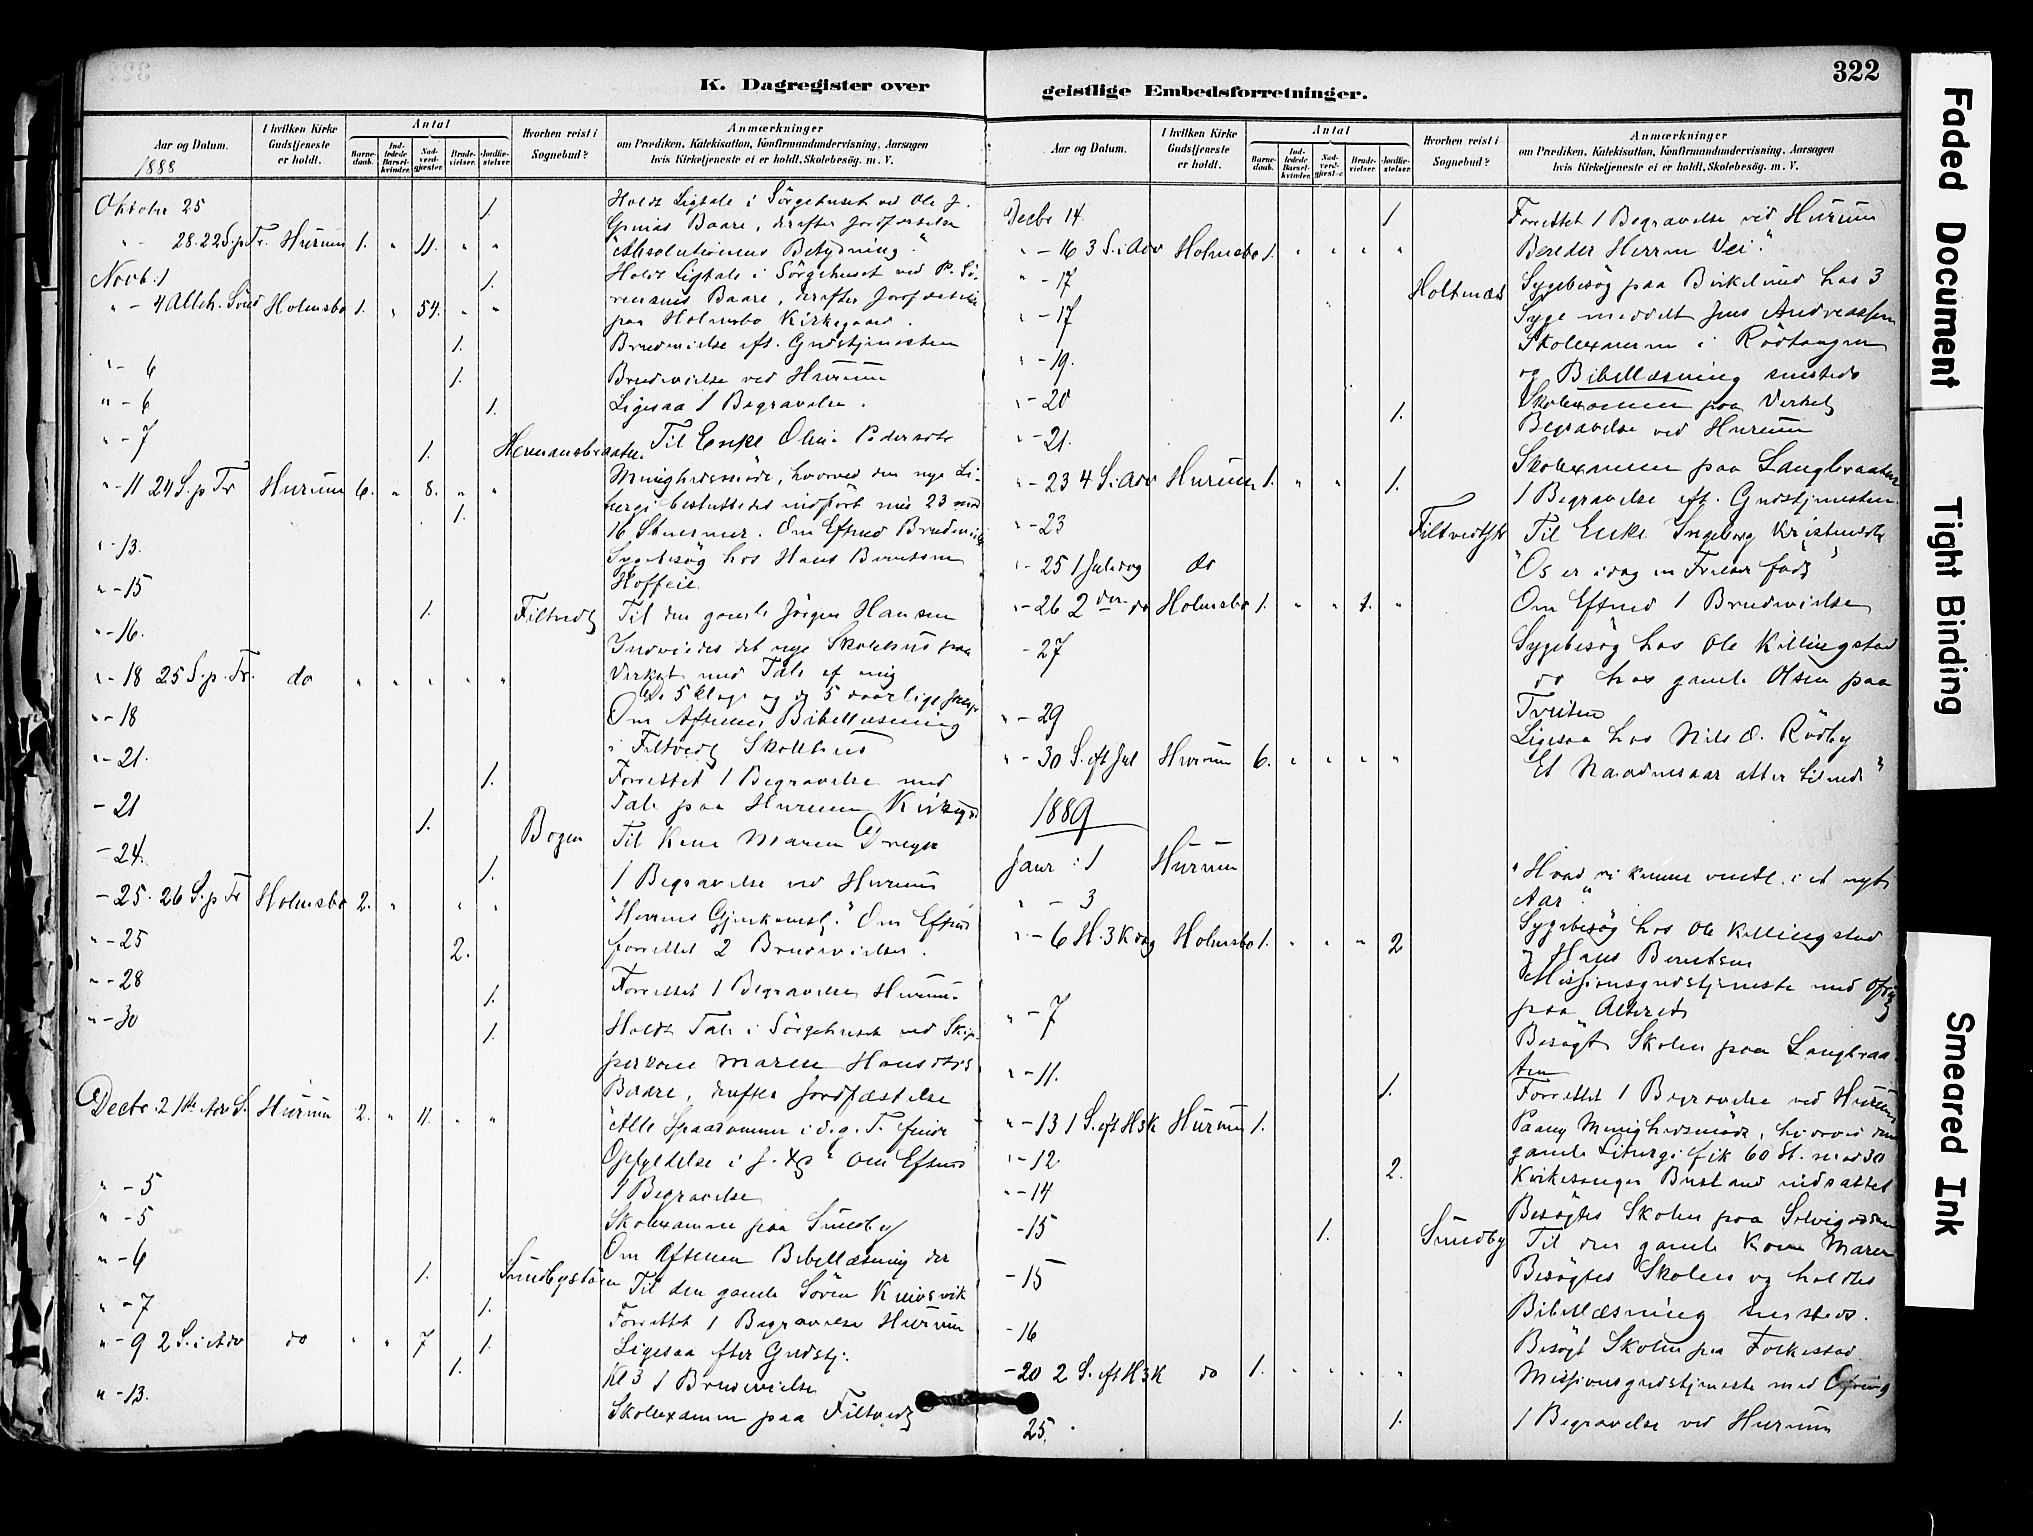 322
K. Dagregister over
geistlige Embedsforretninger.
Aar og Datum.
1888
I hvilken Kirke
Gudstjeneste
er holdt.
Antal
Barne-
daab.
Ind-
ledede
Barsel-
kvinder.
Nad-
verd-
gjæster.
Brude-
vielser.
Jordfæ-
stelser.
Hvorhen reist i
Sognebud?
Anmærkninger
om Prædiken, Katekisation, Konfirmandundervisning, Aarsagen
hvis Kirketjeneste ei er holdt, Skolebesøg. m. V.
Oktober 25 1. Holdt Ligtale i Sørgehuset ved Ole J.
Baare, derefter Jordfæstelse
" - 28. 22 S. p. Tr. Hurum 1. " 11. " " "Absolutionens Betydning".
Novb. 1 1. Holdt Ligtale i Sørgehuset ved P. Sö-
rensens Baare, derefter Jordfæstelse
" - 4 Alleh. Sönd Holmsbo 1. " 54. " " paa Holmsbo Kirkegaard.
1. Brudevielse eft. Gudstjenesten
" - 6 1. Brudevielse ved Hurum
" - 6 1. Ligesaa 1 Begravelse.
" - 7 1. Hermansbraaten. Til Enke Olia Pedersdtr
" - 11 24 S. p Tr Hurum 6. " 8. " " Menighedsmöde, hvorved den nye Li-
1. turgi besluttedes indfört med 23 mod
16 Stemmer. Om Eftmd Brudevielse
" - 13. Sygebesög hos Hans Berntsen
Hoffeie
" - 15
" - 16. 1. Filtvedt Til den gamle Jörgen Hansen
Indviedes det nye Skolehus paa
" - 18 25 S. p. Tr. do " " " " " Verket med Tale af mig
De 5 kloge og de 5 daarlige
" - 18 Om Aftenen Bibellæsning
i Filtvedt Skolehus
" - 21. 1. Forrettet 1 Begravelse med
Tale paa Hurum Kirkegd
- 21 1. Bogen Til Kone Maren Dreyer
- 24. 1. 1 Begravelse ved Hurum
- 25. 26 S. p Tr Holmsbo 2. " " " "Herrens Gjenkomst". Om Eftmd
" - 25 2. forrettet 2 Brudevielser.
" - 28 1. Forrettet 1 Begravelse Hurum.
" - 30 1. Holdt Tale i Sørgehuset ved Skip-
perkone Maren Hansdtrs
Baare, derefter Jordfæstelse
Decbr. 2 1ste Adv. S. Hurum 2. " 11. " " "Alle Spaadomme i d. g. T. finde
Opfyldelse i J. Xp" Om Eftmd
" - 5 1 Begravelse
" - 5 Skolexamen paa Sundby
" - 6 1. Om Aftenen Bibellæsning der
Til den gamle Sören Knivsvik
" - 7 1. Forrettet 1 Begravelse Hurum
" - 9 2 S. i Adv do " " 7 1. Ligesaa efter Gudstj.
1. Kl 3 1 Brudevielse
" - 13. Skolexamen paa Filtvedt
Aar og Datum.
I hvilken Kirke
Gudstjeneste
er holdt.
Antal
Barne-
daab.
Ind-
ledede
Barsel-
kvinder.
Nad-
verd-
gjæster.
Brude-
vielser.
Jordfæ-
stelser.
Hvorhen reist i
Sognebud?
Anmærkninger
om Prædiken, Katekisation, Konfirmandundervisning, Aarsagen
hvis Kirketjeneste ei er holdt, Skolebesøg. m. V.
Decbr 14. 1 Forrettet 1 Begravelse ved Hurum
" - 16 3 S. i Adv Holmsbo 1. " " " " Bereder Herren Vei".
" - 17 Holtnæs Sygebesög paa Birkelund hos 3
" - 17 Syge meddelt Jens Andreassen
" - 19. Skolexamen i Rödtangen
og Bibellæsning sammesteds
" - 20 Skolexamen paa Verket
1. Begravelse ved Hurum
" - 21. Skolexamen paa Langbraaten
" - 23 4 S. i Adv Hurum 1. " " 1. 1 Begravelse eft. Gudstjenesten
" - 23 Til Enke Ingeborg Kristensdtr
" - 25 1 Juledag do "Os er idag en Frelser födt"
" - 26 2 den do Holmsbo 1. " " 1. " Om Eftmd 1 Brudevielse
- 27 Sygebesög hos Ole Killingstad
do hos gamle Olsen paa
" - 29 Tveiten
Ligesaa hos Nils O. Rödby
" - 30 S. eft Jul Hurum 6. " " " " "Et Naadensaar atter tilende"
1889
Janr : 1 Hurum "Hvad vi kunne vente i et nyt
Aar".
" - 3 Sygebesög hos Ole Killingstad
og Hans Berntsen
" - 6 H. 3 K dag Holmsbo 1. " " " 2 Missionsgudstjeneste med Ofring
paa Alteret
" - 7 Besögt Skolen paa Langbraa-
ten
" - 11. 1. Forrettet 1 Begravelse ved Hurum
" - 13 1 S. eft H3K Hurum 1. Paany Menighedsmöde, hvorved den
" - 12 gamle Liturgi fik 60 St. mod 30
2. Kirkesanger Busland indsattes
" - 14 Besögtes Skolen paa
- 15 1. Sundby Til den gamle Kone Maren
- 15 Besögtes Skolen og holdtes
Bibellæsning sammesteds.
- 16 Besögt Skolen paa Folkestad
- 20 2 S. eft H3K do 1. " " " " Missionsgudstjeneste med Ofring
25. 1. 1 Begravelse ved Hurum
Faded Document
Tight Binding
Smeared Ink